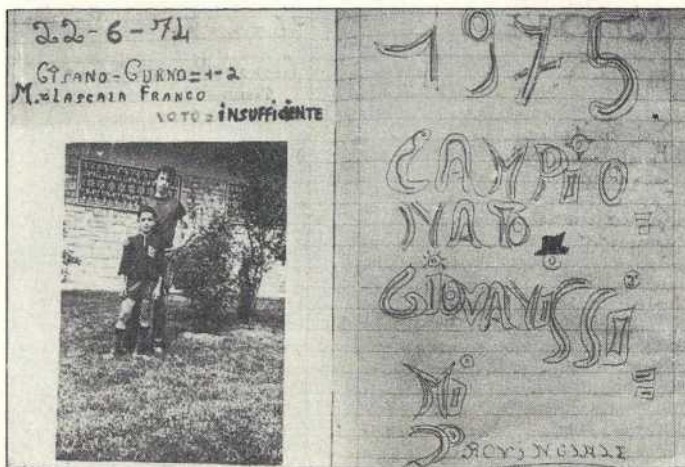 22-6-74
CISANO-CURNO=1-2
M. LASCALA FRANCO
VOTO=INSUFFICIENTE
1975
CAMPIO
NATO
GIOVANISSI
Mi
PROVINCIALE